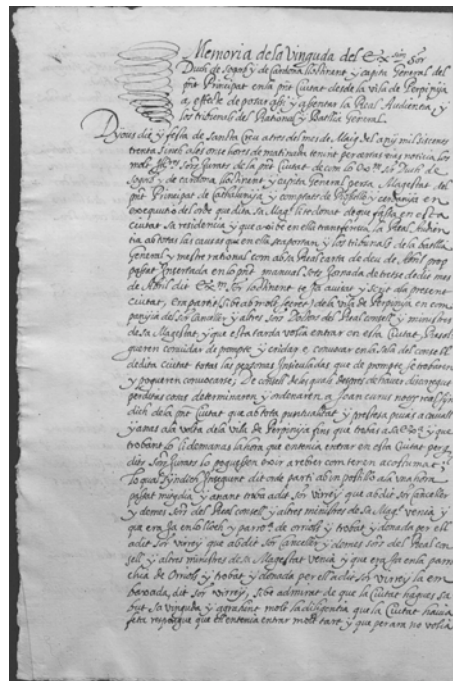 Memoria dela Vinguda del Exsim Sor
Duch de Sogorb y de Cardona llochtinent y capita General del
pnt Principat enla pnt Ciutat desde la vila de Perpinya
a effecte de posar assi y assentar la Real Audientia y
los tribunals del Rational y Batllia General.
Dijous die y festa de Sancta Creu a tres del mes de Maig del any mil siscents
trenta sinch ales onse hores de matinada tenint per certas vias noticia los
molt Ilsrs Sors Jurats de la pnt Ciutat de com lo Exm Sor Duch de
Sogorb y de Cardona llochtinent y capita General persa Magestat del
pnt Principat de Cathalunya y comptats de Rossello y Cerdanya en
exequutio del orde que dita sa Magt li te donat de que fassa en esta
ciutat sa residencia y que axibe en ella transferesca la Real Audien
tia ab totas las causas que en ella se aportan y los tribunals de la batllia
General y mestre rational com ab sa Real carta de deu de Abril prop
passat Insertada en lo pnt manual sots Jornada de tretse de dit mes
de Abril dit Exm Sor llochtinent te ja avisat y scrit ala present
ciutat, era partit sibe ab molt secret de la vila de Perpinya en com
panyia del sor Canceller y altres sors Doctors del Real consell y ministres
de sa Magestat y que esta tarda volia entrar en esta Ciutat Resol
gueren convidar de prompte y cridar e convocar en la sala del consell
de dita ciutat totas las personas Insiculadas que de prompte se trobaren
y pogueren convocarse; De consell de las quals despres de haver discorregut
per ditas cosas determinaren y ordenaren a Joan
dich de la pnt Ciutat que ab tota puntualitat y prestesa pujas a cavall
y anas ala volta dela vila de Perpinya fins que trobas a sa Exa y que
trobant lo li demanas la hora que entenia entrar en esta Ciutat perq
dits Sors Jurats lo poguessen exir a rebrer com teren acostumat
lo qual syndich Insequint dit orde parti ab un postillo ala una hora
passat mitgdia y anant troba a dit sor Virrey que ab dit Sor Canceller
y demes sors del Real consell y altres ministres de sa Magt venia y
que era ja en lo lloch y parroa de orriols y trobat y donada per ell
a dit sor virrey que ab dit sor canceller y demes sors del Real con
sell y altres ministres de sa Magestat venia y que era ja en la parro
chia de Orriols y trobat y donada per ell a dit sor virrey la em
baxada, dit sor Virrey, sibe admirat de que la Ciutat hagues sa
but sa vinguda y agrahint molt la diligentia que la Ciutat havia
feta respongue que ell entenia entrar molt tart y que per ara no volia